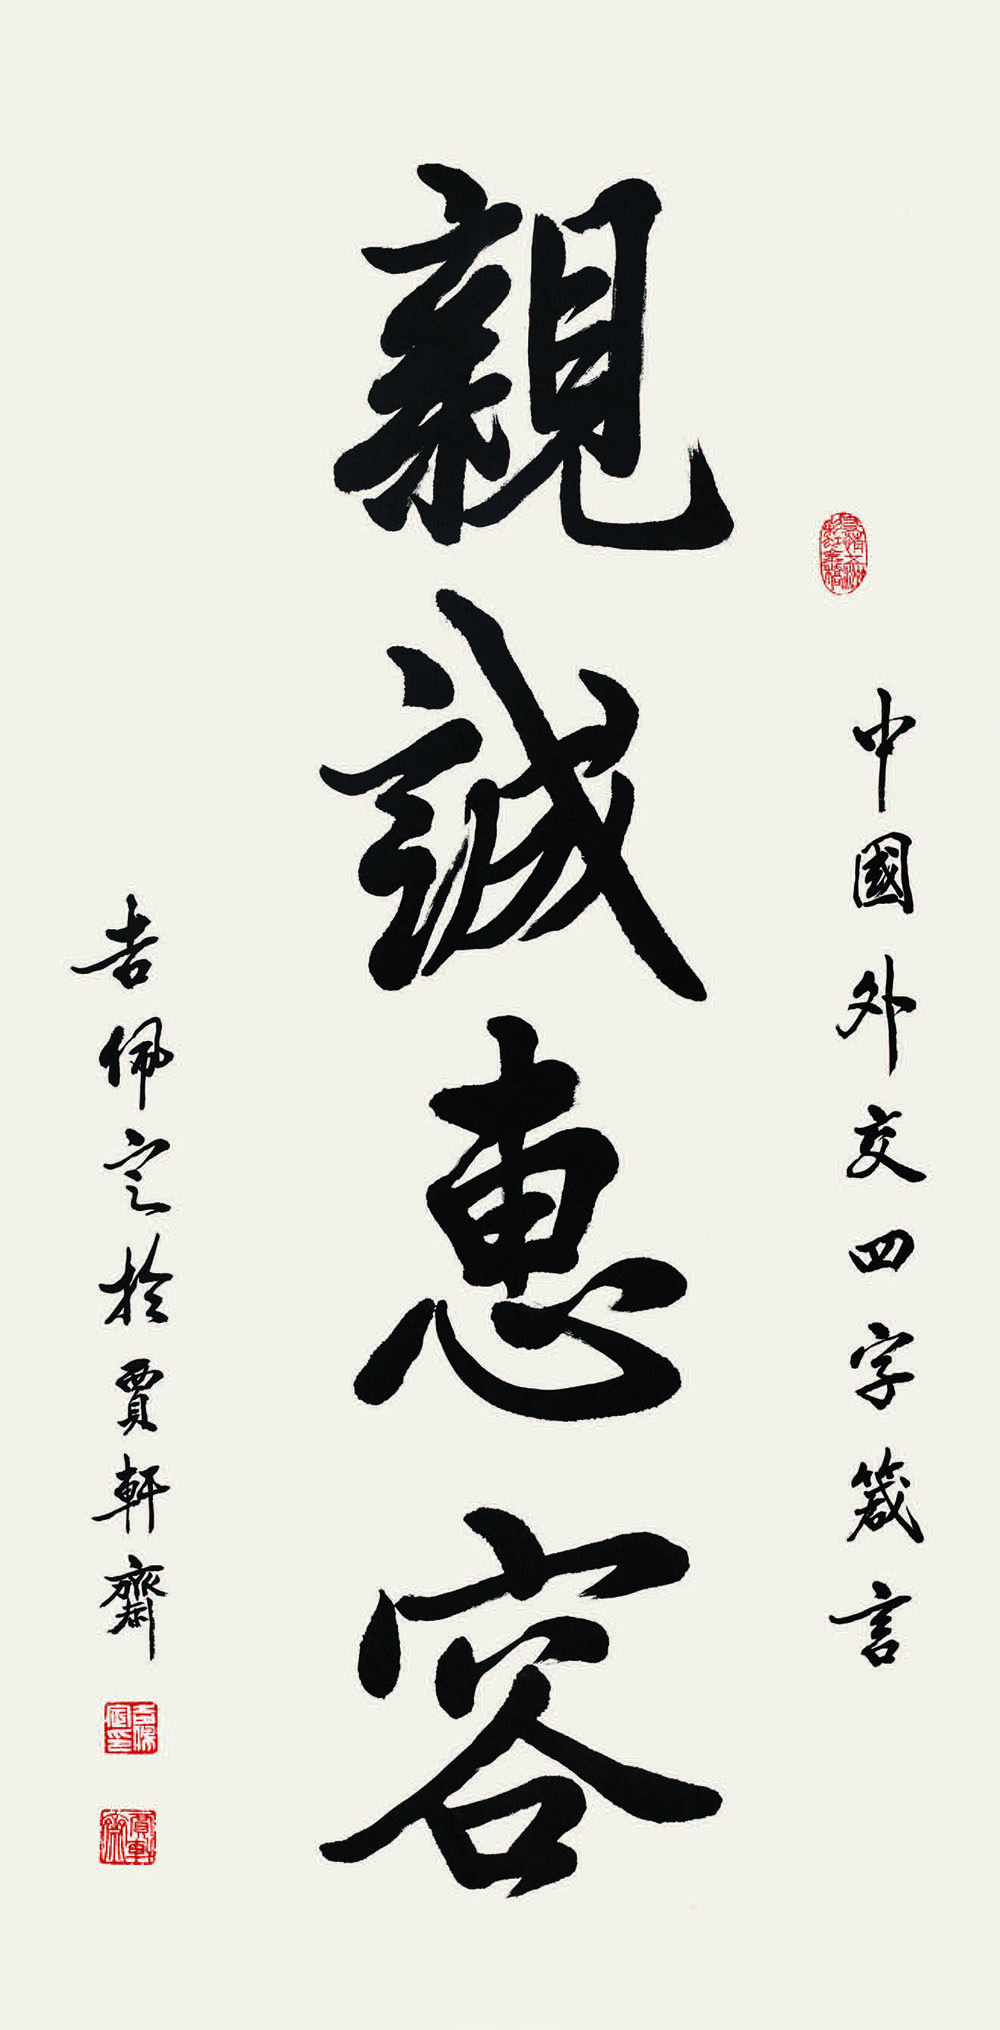 中國外交四字箴言
親誠惠容
吉佩定於賈軒齋